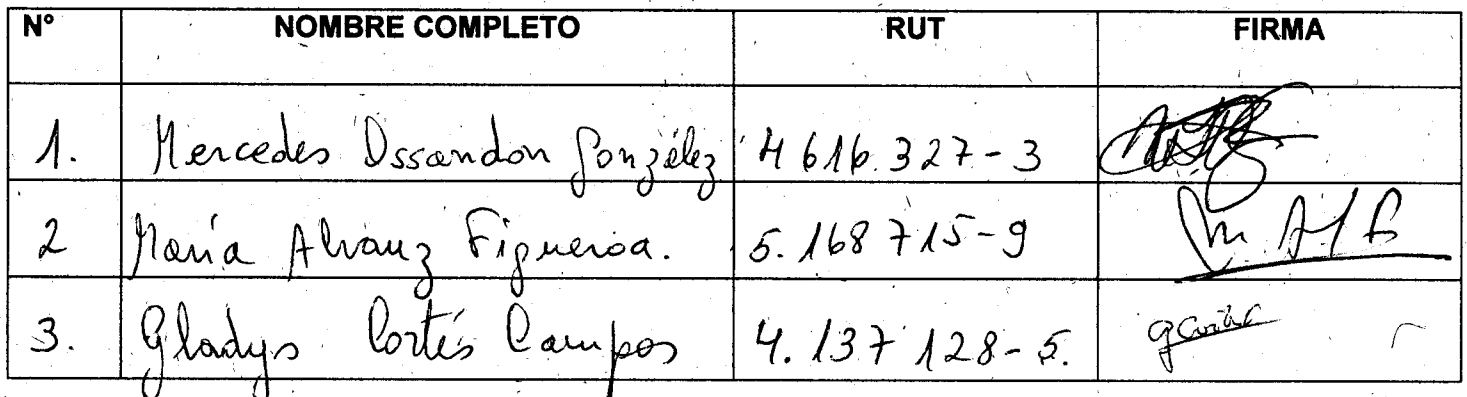 N° NOMBRE COMPLETO RUT FIRMA
1. Mercedes Ossandon González 4616.327-3
2 María Alvarez Figueroa. 5.168715-9
3. Gladys Cortés Campos 4.137128-5.